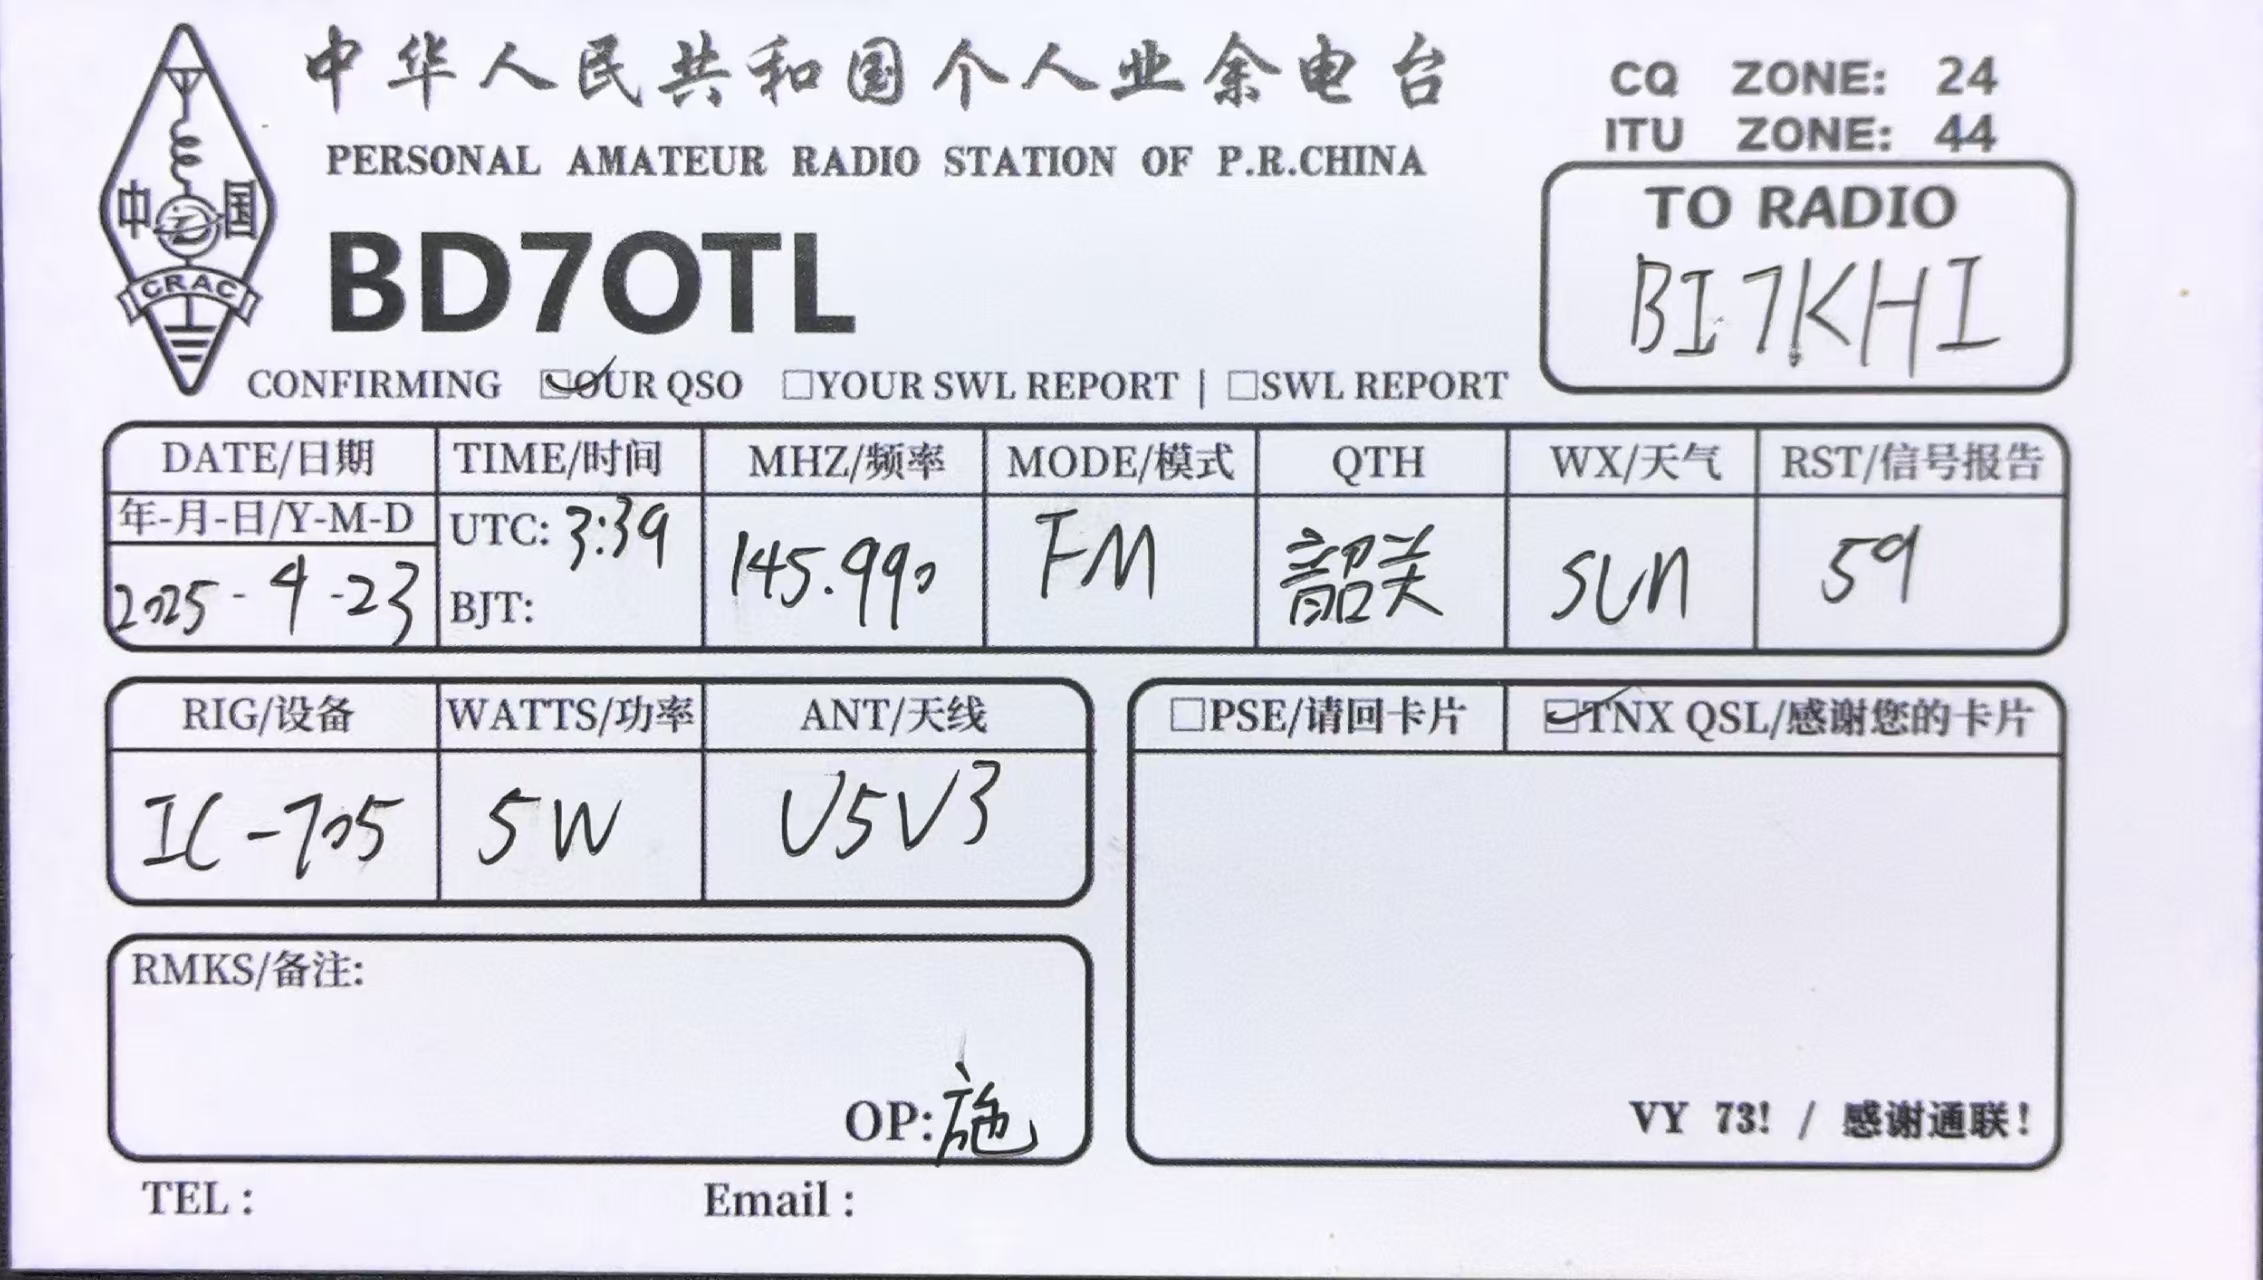 中华人民共和国个人业余电台
PERSONAL AMATEUR RADIO STATION OF P.R.CHINA
CQ ZONE: 24
ITU ZONE: 44
中国
CRAC
BD7OTL
TO RADIO
BI7KHI
CONFIRMING ☑OUR QSO □YOUR SWL REPORT | □SWL REPORT
DATE/日期 TIME/时间 MHZ/频率 MODE/模式 QTH WX/天气 RST/信号报告
年-月-日/Y-M-D
2025-4-23
UTC: 3:39
BJT:
145.990 FM 韶关 SUN 59
RIG/设备 WATTS/功率 ANT/天线
IC-705 5W U5V3
□PSE/请回卡片 ☑TNX QSL/感谢您的卡片
VY 73! / 感谢通联!
RMKS/备注:
OP:施
TEL: Email: